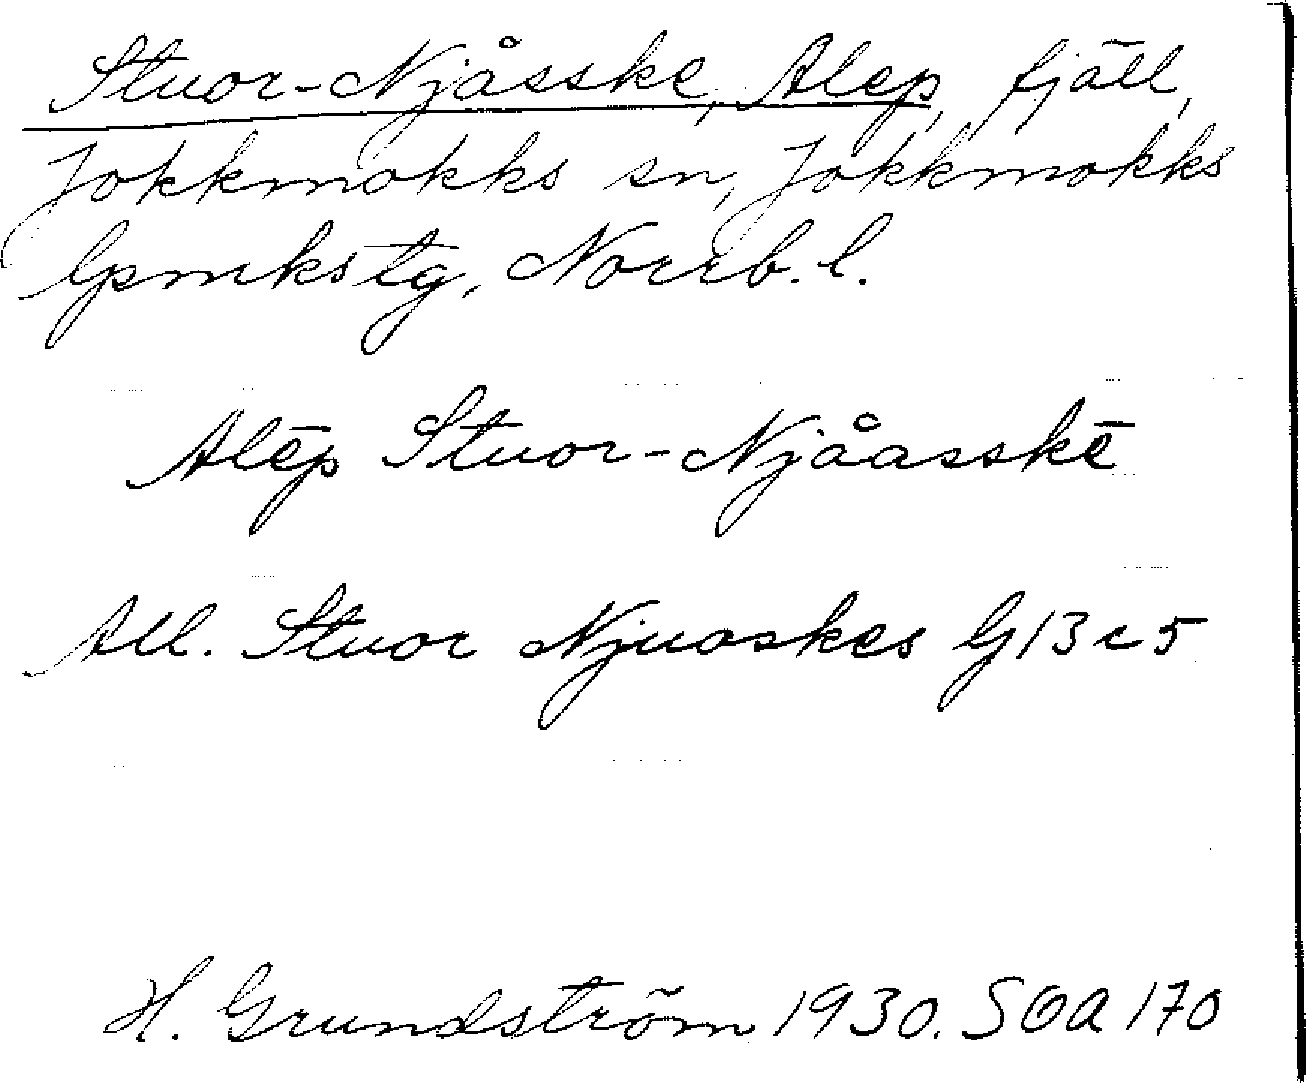 Stuor-Njåsske, Alep, fjäll,
Jokkmokks sn, Jokkmokks
lpmkstg, Norrb. l.
Alēp Stuor-Njåasskē
All. Stuor Njuoskes G13c5
H. Grundström 1930. SOA 170